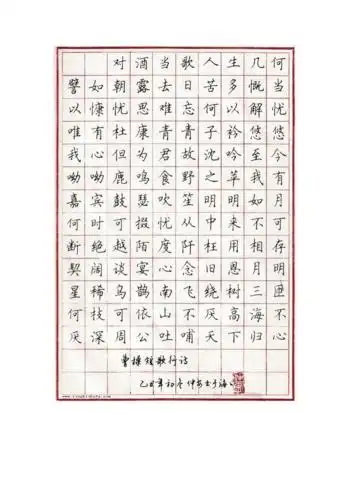 对酒当歌人生几何
譬如朝露去日苦多慨当
以慷忧思难忘何以解忧
唯有杜康青青子衿悠悠
我心但为君故沈吟至今
呦呦鹿鸣食野之苹我有
嘉宾鼓瑟吹笙明明如月
何时可掇忧从中来不可
断绝越陌度阡枉用相存
契阔谈宴心念旧恩月明
星稀乌鹊南飞绕树三匝
何枝可依山不厌高海不
厌深周公吐哺天下归心
曹操短歌行诗
年初冬